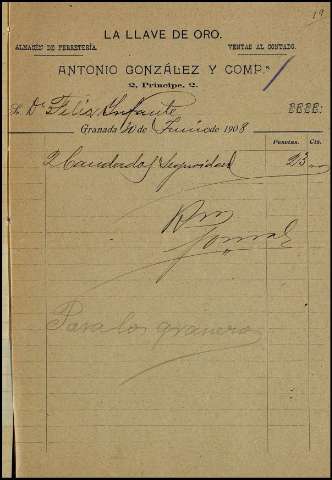 19
LA LLAVE DE ORO.
ALMACÉN DE FERRETERÍA. VENTAS AL CONTADO.
ANTONIO GONZÁLEZ Y COMP.ª
2, Príncipe, 2.
S. D. Felix Infante
Granada 20 de Junio de 1908
Pesetas. Cts.
2 Candados Seguridad 23
Para los graneros